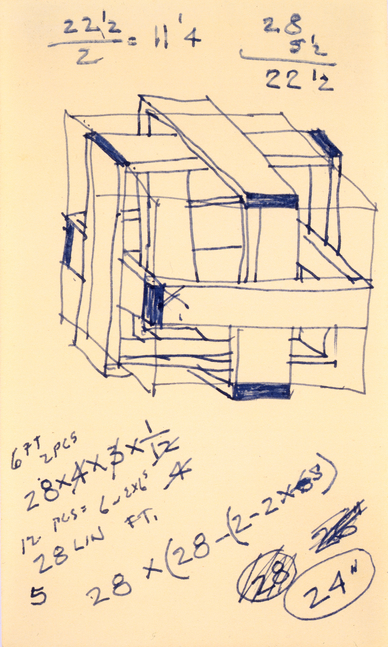 22 1/2 / 2 = 11 1/4
28
5 1/2
22 1/2
6 FT 2 PCS
28 x 4 x 3 x 1/12
4
12 PCS = 6 - 2x6's
28 LIN FT.
5 28 x (28 - (2 - 2x6's)
28
24"